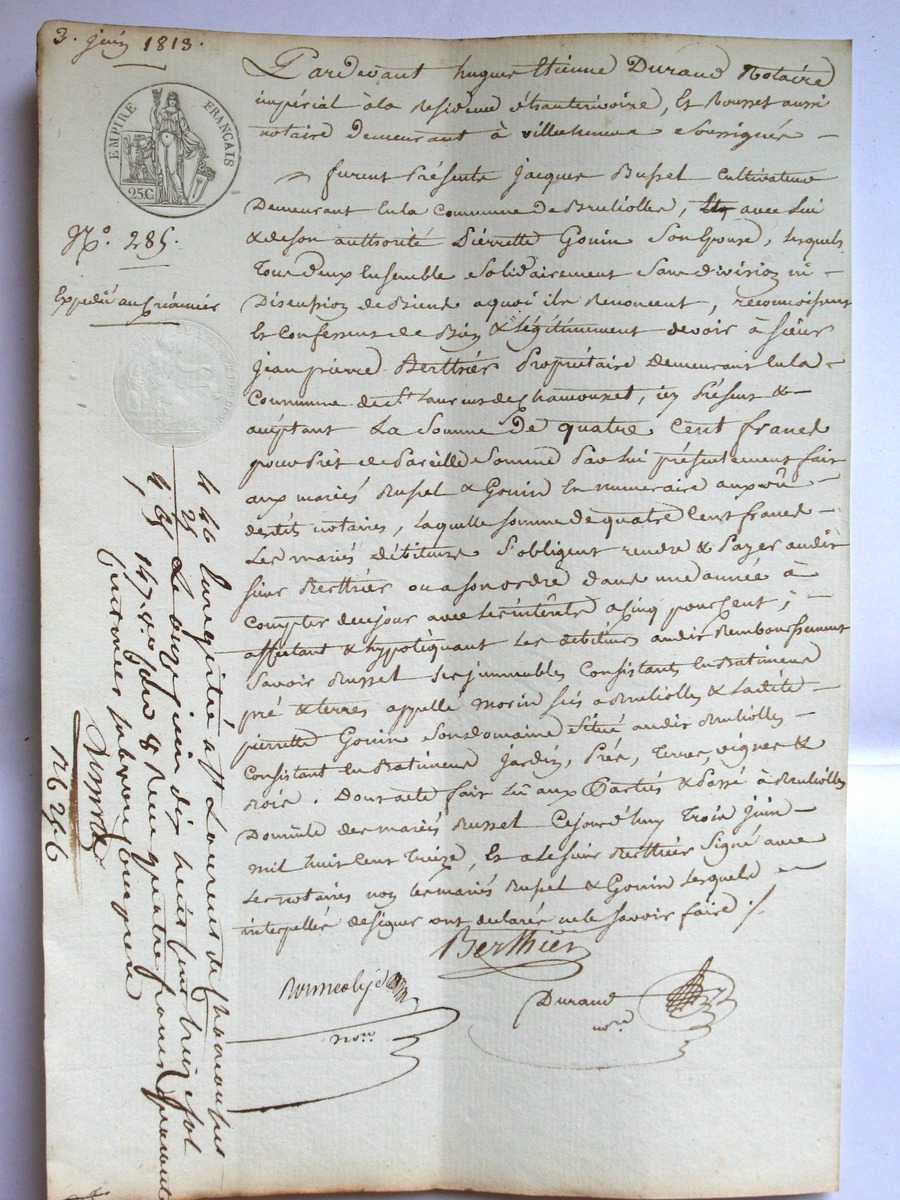 3. juin 1813.
EMPIRE FRANÇAIS
25C
N.º 285.
Expedié au créancier
Pardevant hugues Etienne Durand Notaire
impérial à la Residence de hauterivoire, Et Rousset aussi
notaire Demeurant à Soussignés
furent Présents Jacques Bussel Cultivateur
Demeurant En la Commune de Brulioles, avec lui
& de son authorité Pierrette Gouin Son Epouse, lesquels
Tous deux Ensemble Solidairement Sans division ni
Discussion de Biens a quoi ils Renoncent, reconnoissent
Et Confessent de Bien & légitimement devoir à Sieur
jean pierre Berthier Propriétaire Demeurant En la
Commune de St. Laurent de Chamousset, icy Présent &
acceptant La Somme De quatre Cent francs
pour Prêt de Pareille Somme Par lui présentement fait
aux mariés Bussel & Gouin En numeraire aux vû
desdits notaires, Laquelle somme de quatre Cent francs
Les mariés débiteurs S'obligent rendre & Payer audit
sieur Berthier ou a son ordre dans une année à
Compter de ce jour avec Les intérêts a Cinq pour Cent ;
affectant & hypotéquant Les débiteurs audit Remboursement
Savoir Bussel Ses jmmeubles Consistants En Batiments
pré & terres appellé morin Sis a Brulioles & Ladite
pierrette Gouin Son domaine Situé audit Brulioles
Consistant En Batiments Jardin, Prés, Terres, vignes &
Bois. Dont acte fait Lû aux Parties & Passé à Brulioles
Domicile des mariés Bussel Cejourd'huy Trois Juin
mil huit Cent Treize, Et a Le Sieur Berthier Signé avec
Les notaires non Les mariés Bussel & Gouin Lesquels
interpellés de signer ont declarés ne le Savoir faire ./.
Berthier
Durand
nore
nore
Enregistré a St Laurent de Chamousset
Le onze juin dix huit Cent treize fol
147. Reçu quatre francs